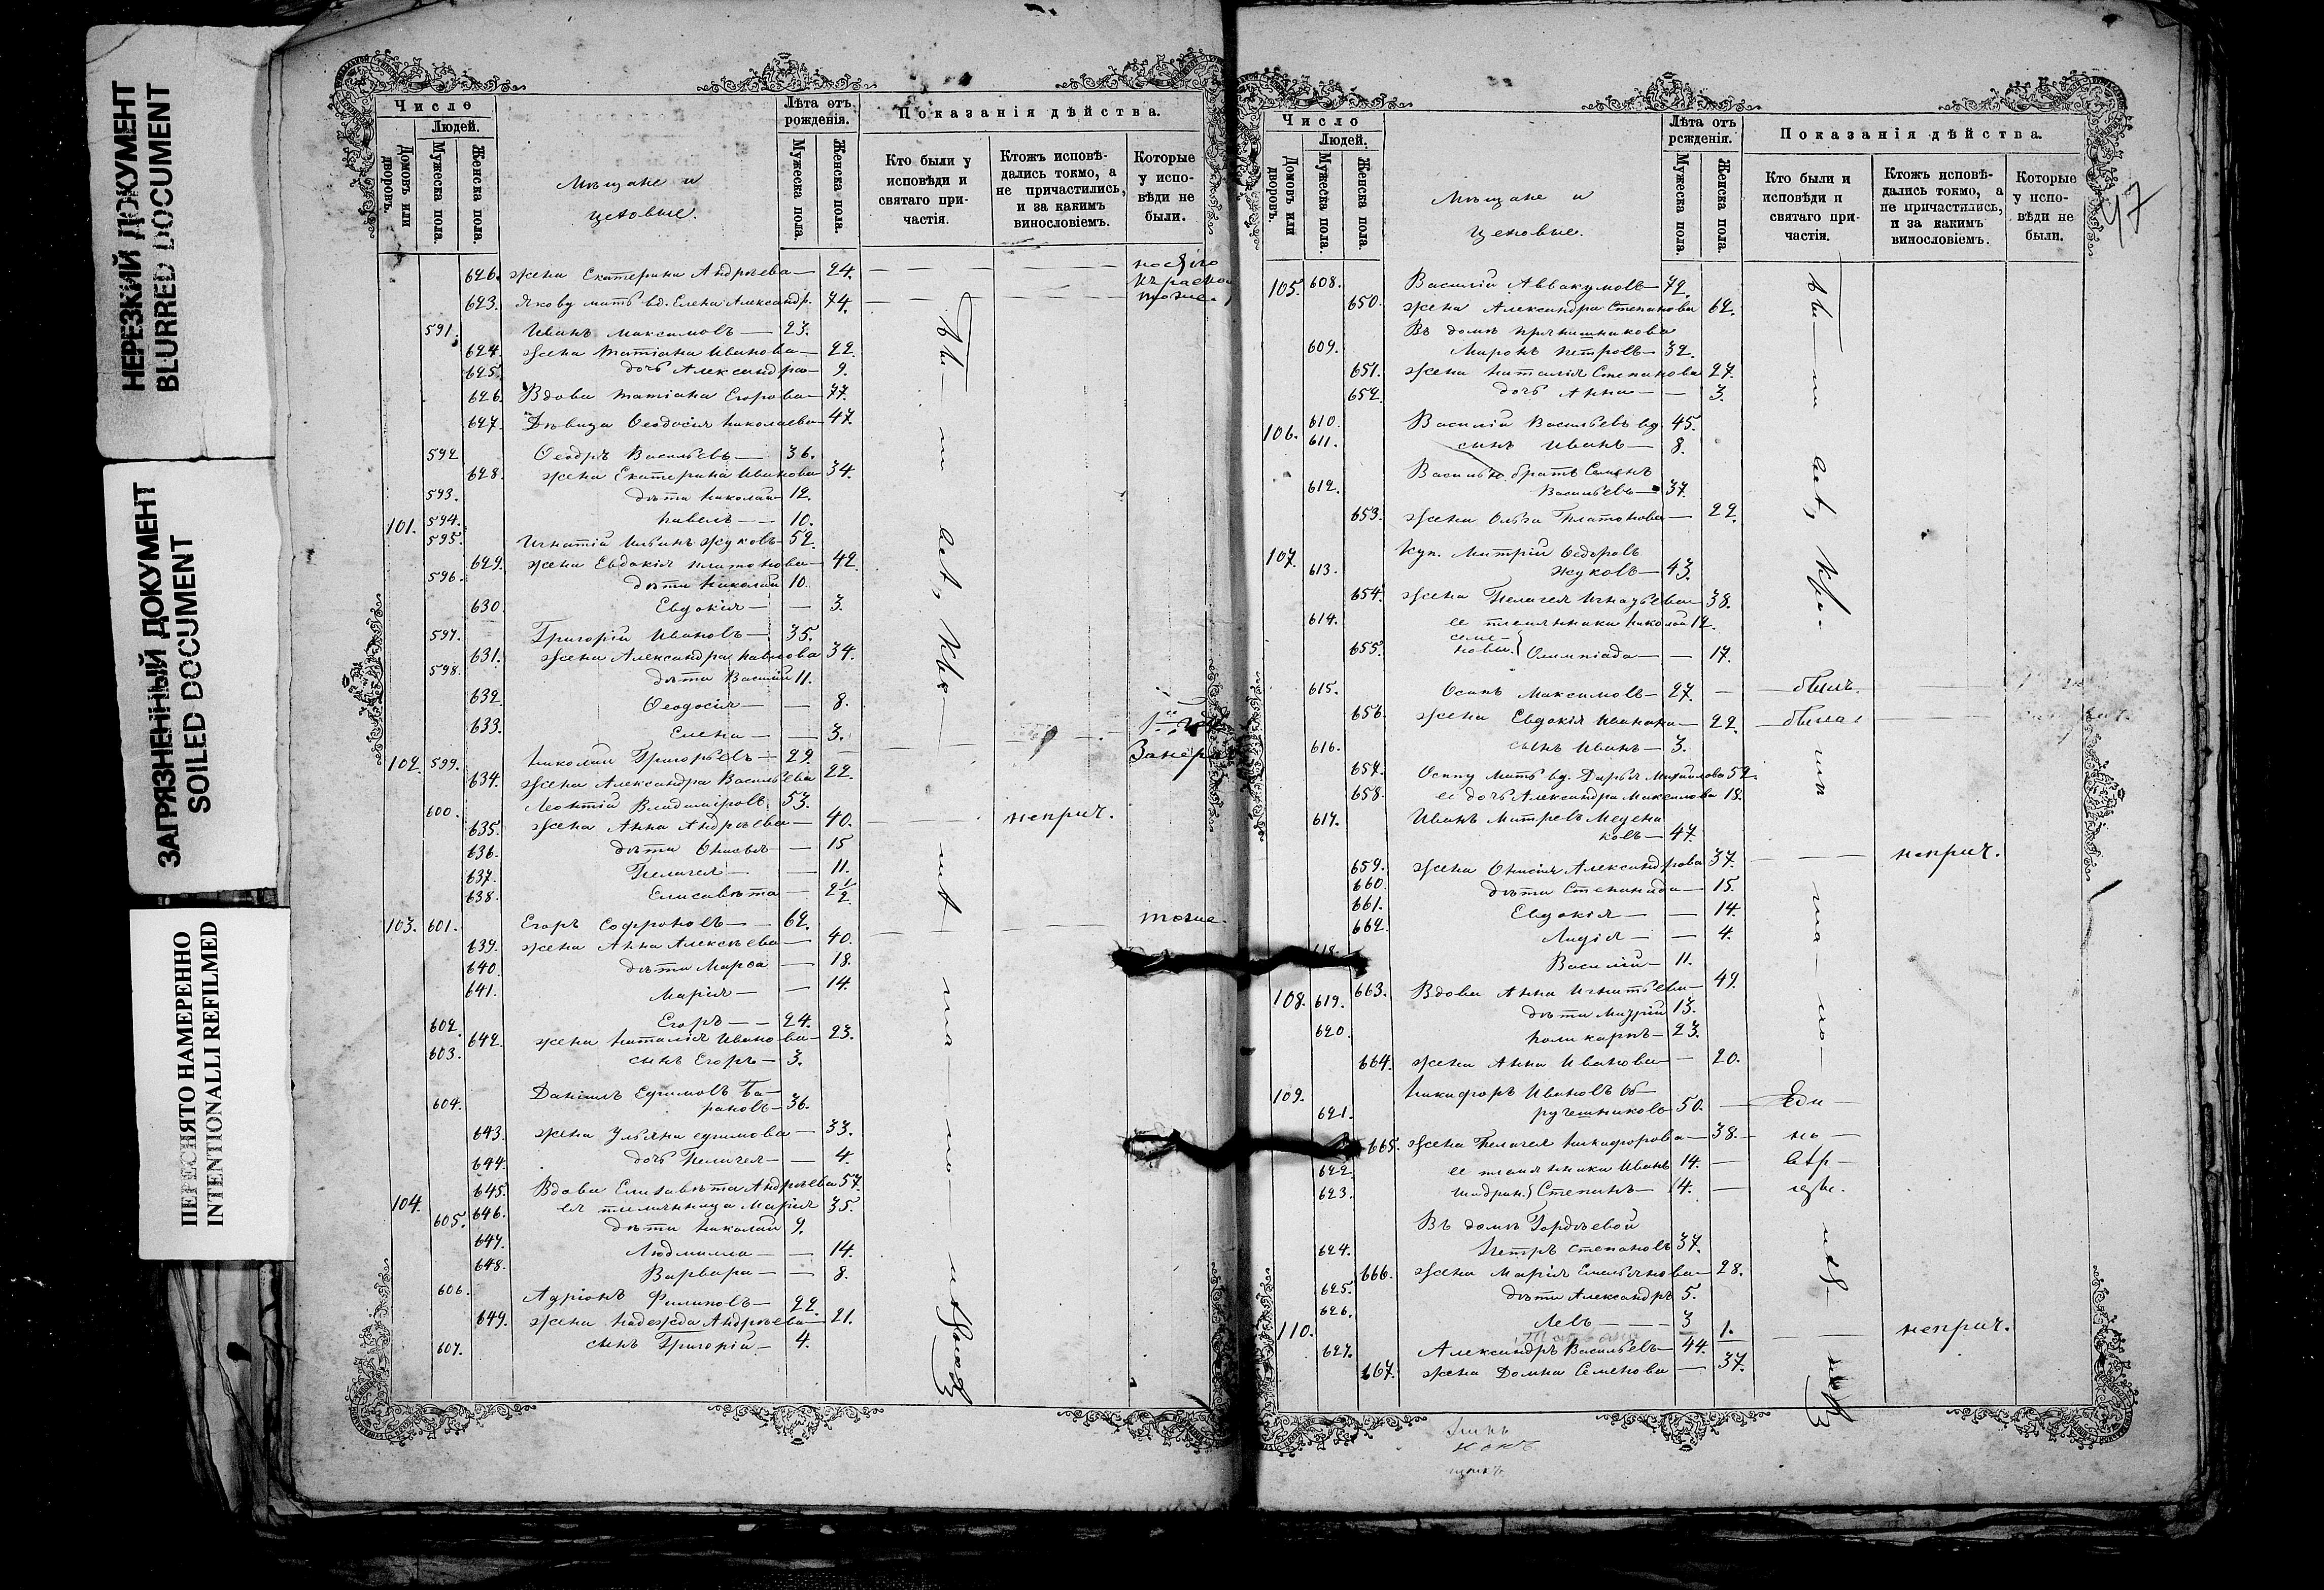 НЕРЕЗКИЙ ДОКУМЕНТ
BLURRED DOCUMENT
ЗАГРЯЗНЕННЫЙ ДОКУМЕНТ
SOILED DOCUMENT
ПЕРЕСНЯТО НАМЕРЕННО
INTENTIONALLI REFILMED
Число
Людей.
Домовъ или дворовъ.
Мужеска пола.
Женска пола.
Мѣщане и
цеховые.
Лѣта отъ рожденія.
Мужеска пола.
Женска пола.
Показанія дѣйства.
Кто были у исповѣди и святаго причастія.
Ктожъ исповѣдались токмо, а не причастились, и за какимъ винословіемъ.
Которые у исповѣди не были.
626. жена Екатерина Андрѣева — 24.
623. Якову мать вд. Елена Александр. 74.
591. Иванъ Максимовъ — 23.
624. жена Татіана Иванова — 22.
625. дочь Александра — 9.
626. Вдова Татіана Егорова — 77.
627. Дѣвица Ѳеодосія Николаева — 47.
592 Ѳеодръ Васильевъ — 36.
628. жена Екатерина Иванова 34.
593. дѣти Николай 12.
594. Павелъ — 10.
101. 595. Игнатій Ильинъ Жуковъ — 52.
629. жена Евдокія Платонова — 42
596. дѣти Николай 10.
630. Евдокія — — 3.
597. Григорій Ивановъ — 35.
631. жена Александра Павлова 34.
598. дѣти Василій 11.
632. Ѳеодосія — — 8.
633. Елена — — 3.
102. 599. Николай Григорьевъ — 29
634. жена Александра Васильева 22.
600. Леонтій Владиміровъ 53.
635. жена Анна Андрѣева — 40. неприч.
636. дѣти Онисья — 15
637. Пелагея — — 11.
638. Елисавѣта — 2 1/2
103. 601. Егоръ Софроновъ — 62. тоже.
639. жена Анна Алексѣева — 40.
640. дѣти Марѳа — 18.
641. Марія — — 14.
602. Егоръ — — 24.
642. жена Наталія Иванова — 23.
603. сынъ Егоръ — 3.
604. Даніилъ Ефимовъ Ба-
рановъ — 36.
643. жена Ульяна Ефимова — 33.
644. дочь Пелагея — — 4.
645. Вдова Елизавѣта Андрѣева 57.
104. 646. ея племянница Марія 35.
605. дѣти Николай 9.
647. Людмилла — — 14.
648. Варвара — — 8.
606. Адріонъ Филиповъ — 22.
649. жена Надежда Андрѣева — 21.
607. сынъ Григорій — 4.
47
Число
Людей.
Домовъ или дворовъ.
Мужеска пола.
Женска пола.
Мѣщане и
цеховые.
Лѣта отъ рсжденія.
Мужеска пола.
Женска пола.
Показанія дѣйства.
Кто были и исповѣди и святаго причастія.
Ктожъ исповѣдались токмо, а не причастились, и за какимъ винословіемъ.
Которые у исповѣди не были.
105. 608. Василій Аввакумовъ — 72.
650. жена Александра Степанова 62.
Въ домѣ Прянишникова
609. Миронъ Петровъ — 32.
651. жена Наталія Степанова 27.
652. дочь Анна — — 3.
106. 610. Василій Васильевъ вд. 45.
611. сынъ Иванъ — 8.
Василья братъ Семенъ
612. Васильевъ — 37.
653. жена Ольга Платонова — 22.
107. Куп. Митрій Ѳедоровъ
613. Жуковъ — 43.
654. жена Пелагея Игнатьева — 38.
614. ее племянники Николай 12.
655. Олимпіада — — 17.
615. Осипъ Максимовъ — 27. — былъ
656 жена Евдокія Иванова — 22. — была
616. сынъ Иванъ — 3.
657. Осипу мать вд. Дарья Михайлова 52.
658. ее дочь Александра Максимова 18.
617. Иванъ Митревъ Медени
ковъ — 47.
659. жена Онисія Александрова 37. — неприч.
660. дѣти Степанида — 15.
661. Евдокія — — 14.
662. Лидія — — 4.
618. Василій — 11.
108. 663. Вдова Анна Игнатьева — 49.
619. дѣти Митрій 13.
620. Поликарпъ — 23.
664. жена Анна Иванова — 20.
109. Никифоръ Ивановъ Об-
621. ручешниковъ 50. — Еди —
665. жена Пелагея Никифорова — 38. — но —
622 ее племянники Иванъ 14. — вѣр —
623. Степанъ — 14. — цы.
Въ домѣ Гордѣевой
624. Петръ Степановъ 37.
666. жена Марія Емельянова — 28.
625. дѣти Александръ 5.
626. Левъ — — 3
1.
110. 627. Александръ Васильевъ — 44. неприч.
667. жена Домна Семенова — 37.